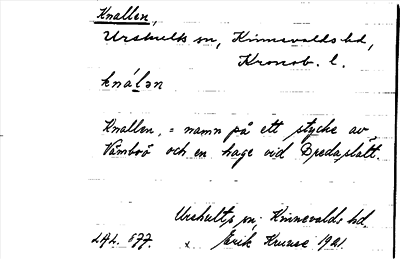 Knallen,
Urshults sn, Kinnevalds hd,
Kronob. l.
knálən
Knallen, = namn på ett stycke av
Våmboö och en hage vid Bredaslätt.
Urshults sn, Kinnevalds hd.
LAL. 677. Erik Kruuse 1921.